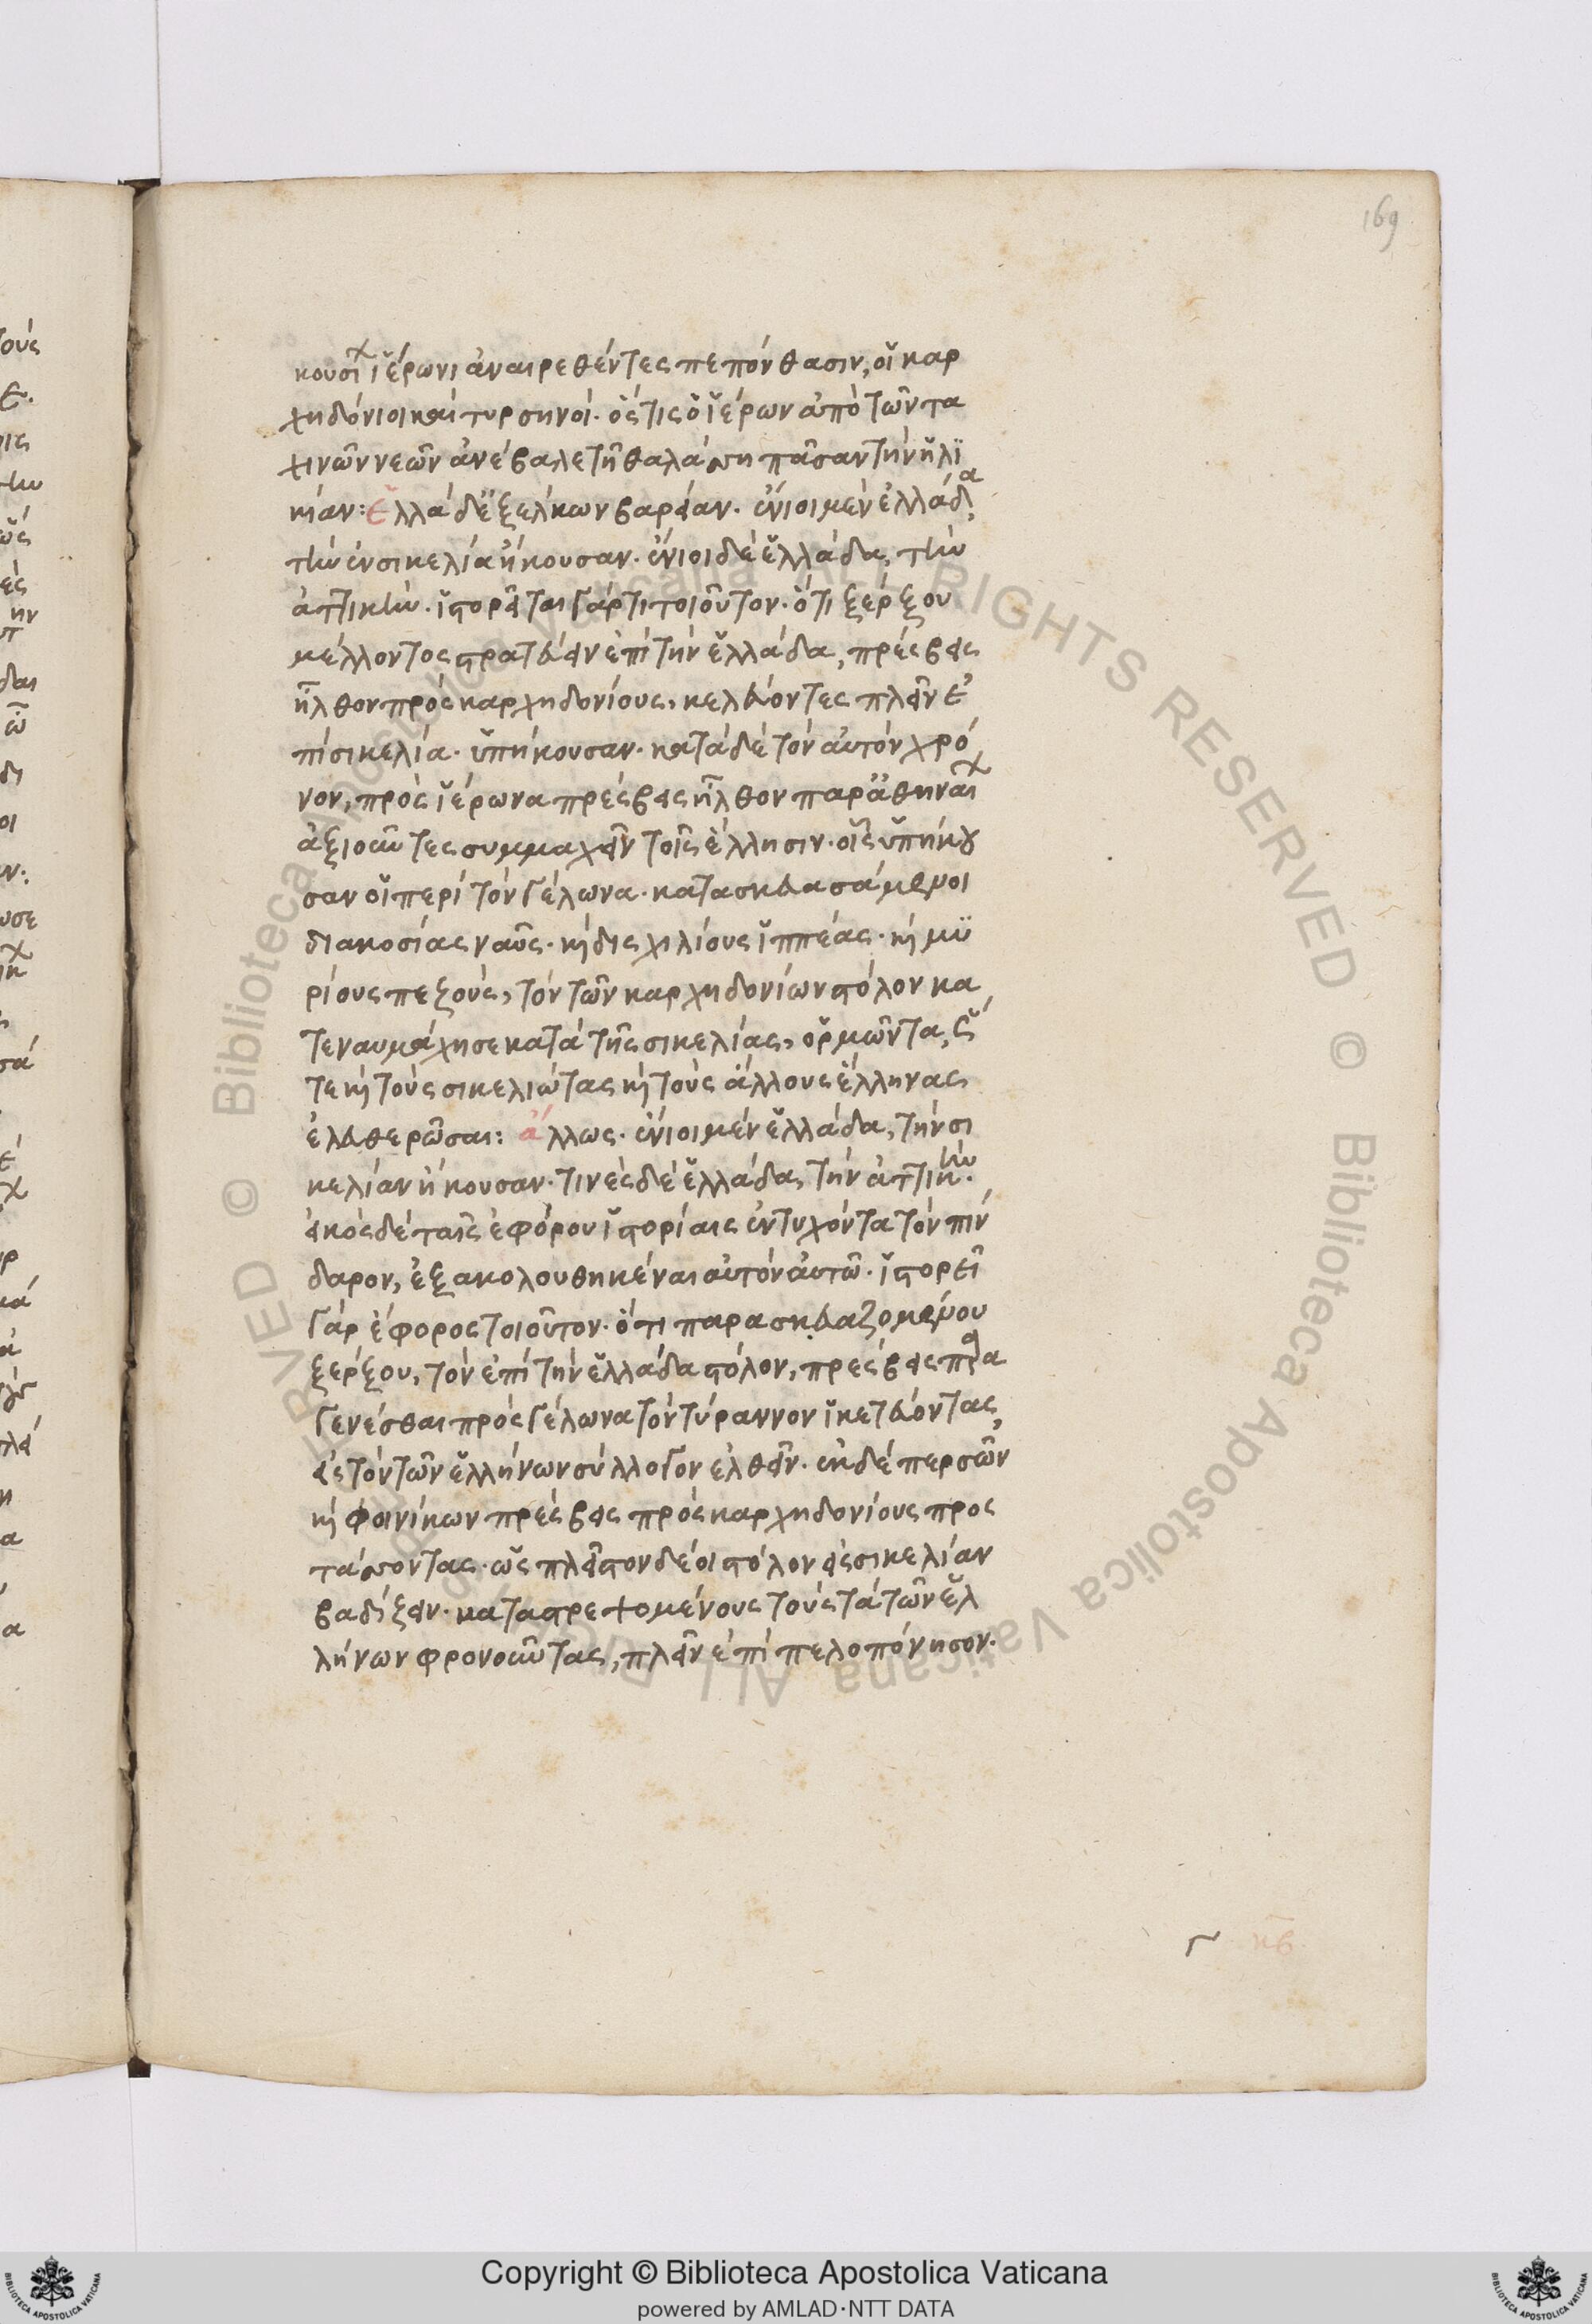 169
κουσίῳ ἱέρωνι ἀναιρεθέντες πεπόνθασιν, οἱ καρ
χηδόνιοι καὶ τυρσηνοί. ὅστις ὁ ἱέρων ἀπὸ τῶν τα
χινῶν νεῶν ἀνέβαλε τῆ θαλάσση πᾶσαν τὴν ἡλϊ
κίαν: ἑλλάδ' ἐξέλκων βαρείαν. ἔνιοι μὲν ἑλλάδα,
τὴν ἐν σικελία ἤκουσαν. ἔνιοι δὲ ἑλλάδα, τὴν
ἀττικήν. ἱστορεῖται γάρ τι τοιοῦτον. ὅτι ξέρξου
μέλλοντος στρατεύειν ἐπὶ τὴν ἑλλάδα, πρέσβεις
ἦλθον πρὸς καρχηδονίους, κελεύοντες πλεῖν ἐ
πὶ σικελία. ὑπήκουσαν. κατὰ δὲ τὸν αὐτὸν χρό
νον, πρὸς ἱέρωνα πρέσβεις ἦλθον παρ' ἀθηναίων
ἀξιοῦντες συμμαχεῖν τοῖς ἕλλησιν. οἷς ὑπήκου
σαν οἱ περὶ τὸν γέλωνα. κατασκευασάμενοι
διακοσίας ναῦς. καὶ δισχιλίους ἱππέας. καὶ μυ
ρίους πεζοὺς, τὸν τῶν καρχηδονίων στόλον κα
τεναυμάχησε κατὰ τῆς σικελίας, ὁρμῶντα, ὥσ
τε καὶ τοὺς σικελιώτας καὶ τοὺς ἄλλους ἕλληνας
ἐλευθερῶσαι: ἄλλως. ἔνιοι μὲν ἑλλάδα, τὴν σι
κελίαν ἤκουσαν. τινὲς δὲ ἑλλάδα, τὴν ἀττικήν.
εἰκὸς δὲ ταῖς ἐφόρου ἱστορίαις ἐντυχόντα τὸν πίν
δαρον, ἐξακολουθηκέναι αὐτὸν αὐτῶ. ἱστορεῖ
γὰρ ἔφορος τοιοῦτον. ὅτι παρασκευαζομένου
ξέρξου, τὸν ἐπὶ τὴν ἑλλάδα στόλον, πρέσβεις παρα
γενέσθαι πρὸς γέλωνα τὸν τύραννον ἱκετεύοντας,
εἰς τὸν τῶν ἑλλήνων σύλλογον ἐλθεῖν. ἐκ δὲ περσῶν
καὶ φοινίκων πρέσβεις πρὸς καρχηδονίους προς
τάσσοντας. ὡς πλεῖστον δέοι στόλον εἰς σικελίαν
βαδίζειν. καταστρεψομένους τοὺς τὰ τῶν ἑλ
λήνων φρονοῦντας, πλεῖν ἐπὶ πελοπόνησον.
κβ
Copyright © Biblioteca Apostolica Vaticana
powered by AMLAD·NTT DATA